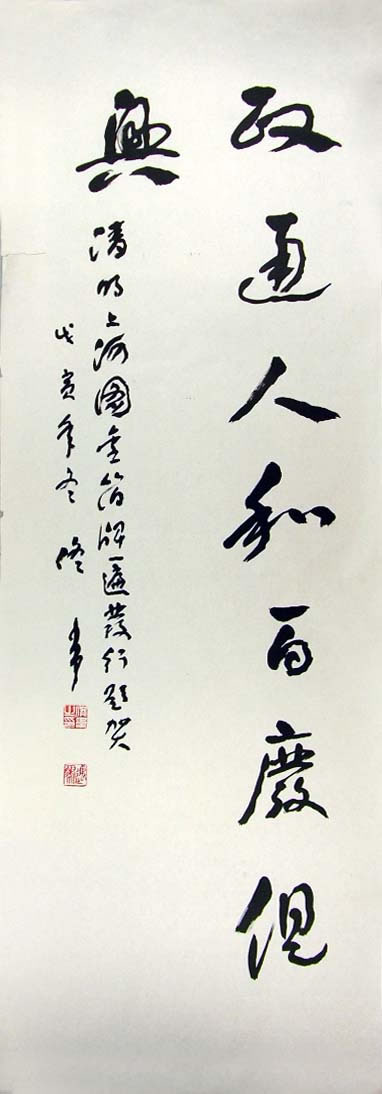 政通人和百廢俱
興
清明上河圖金箔牌匾發行題贺
戊寅年冬 佟韦